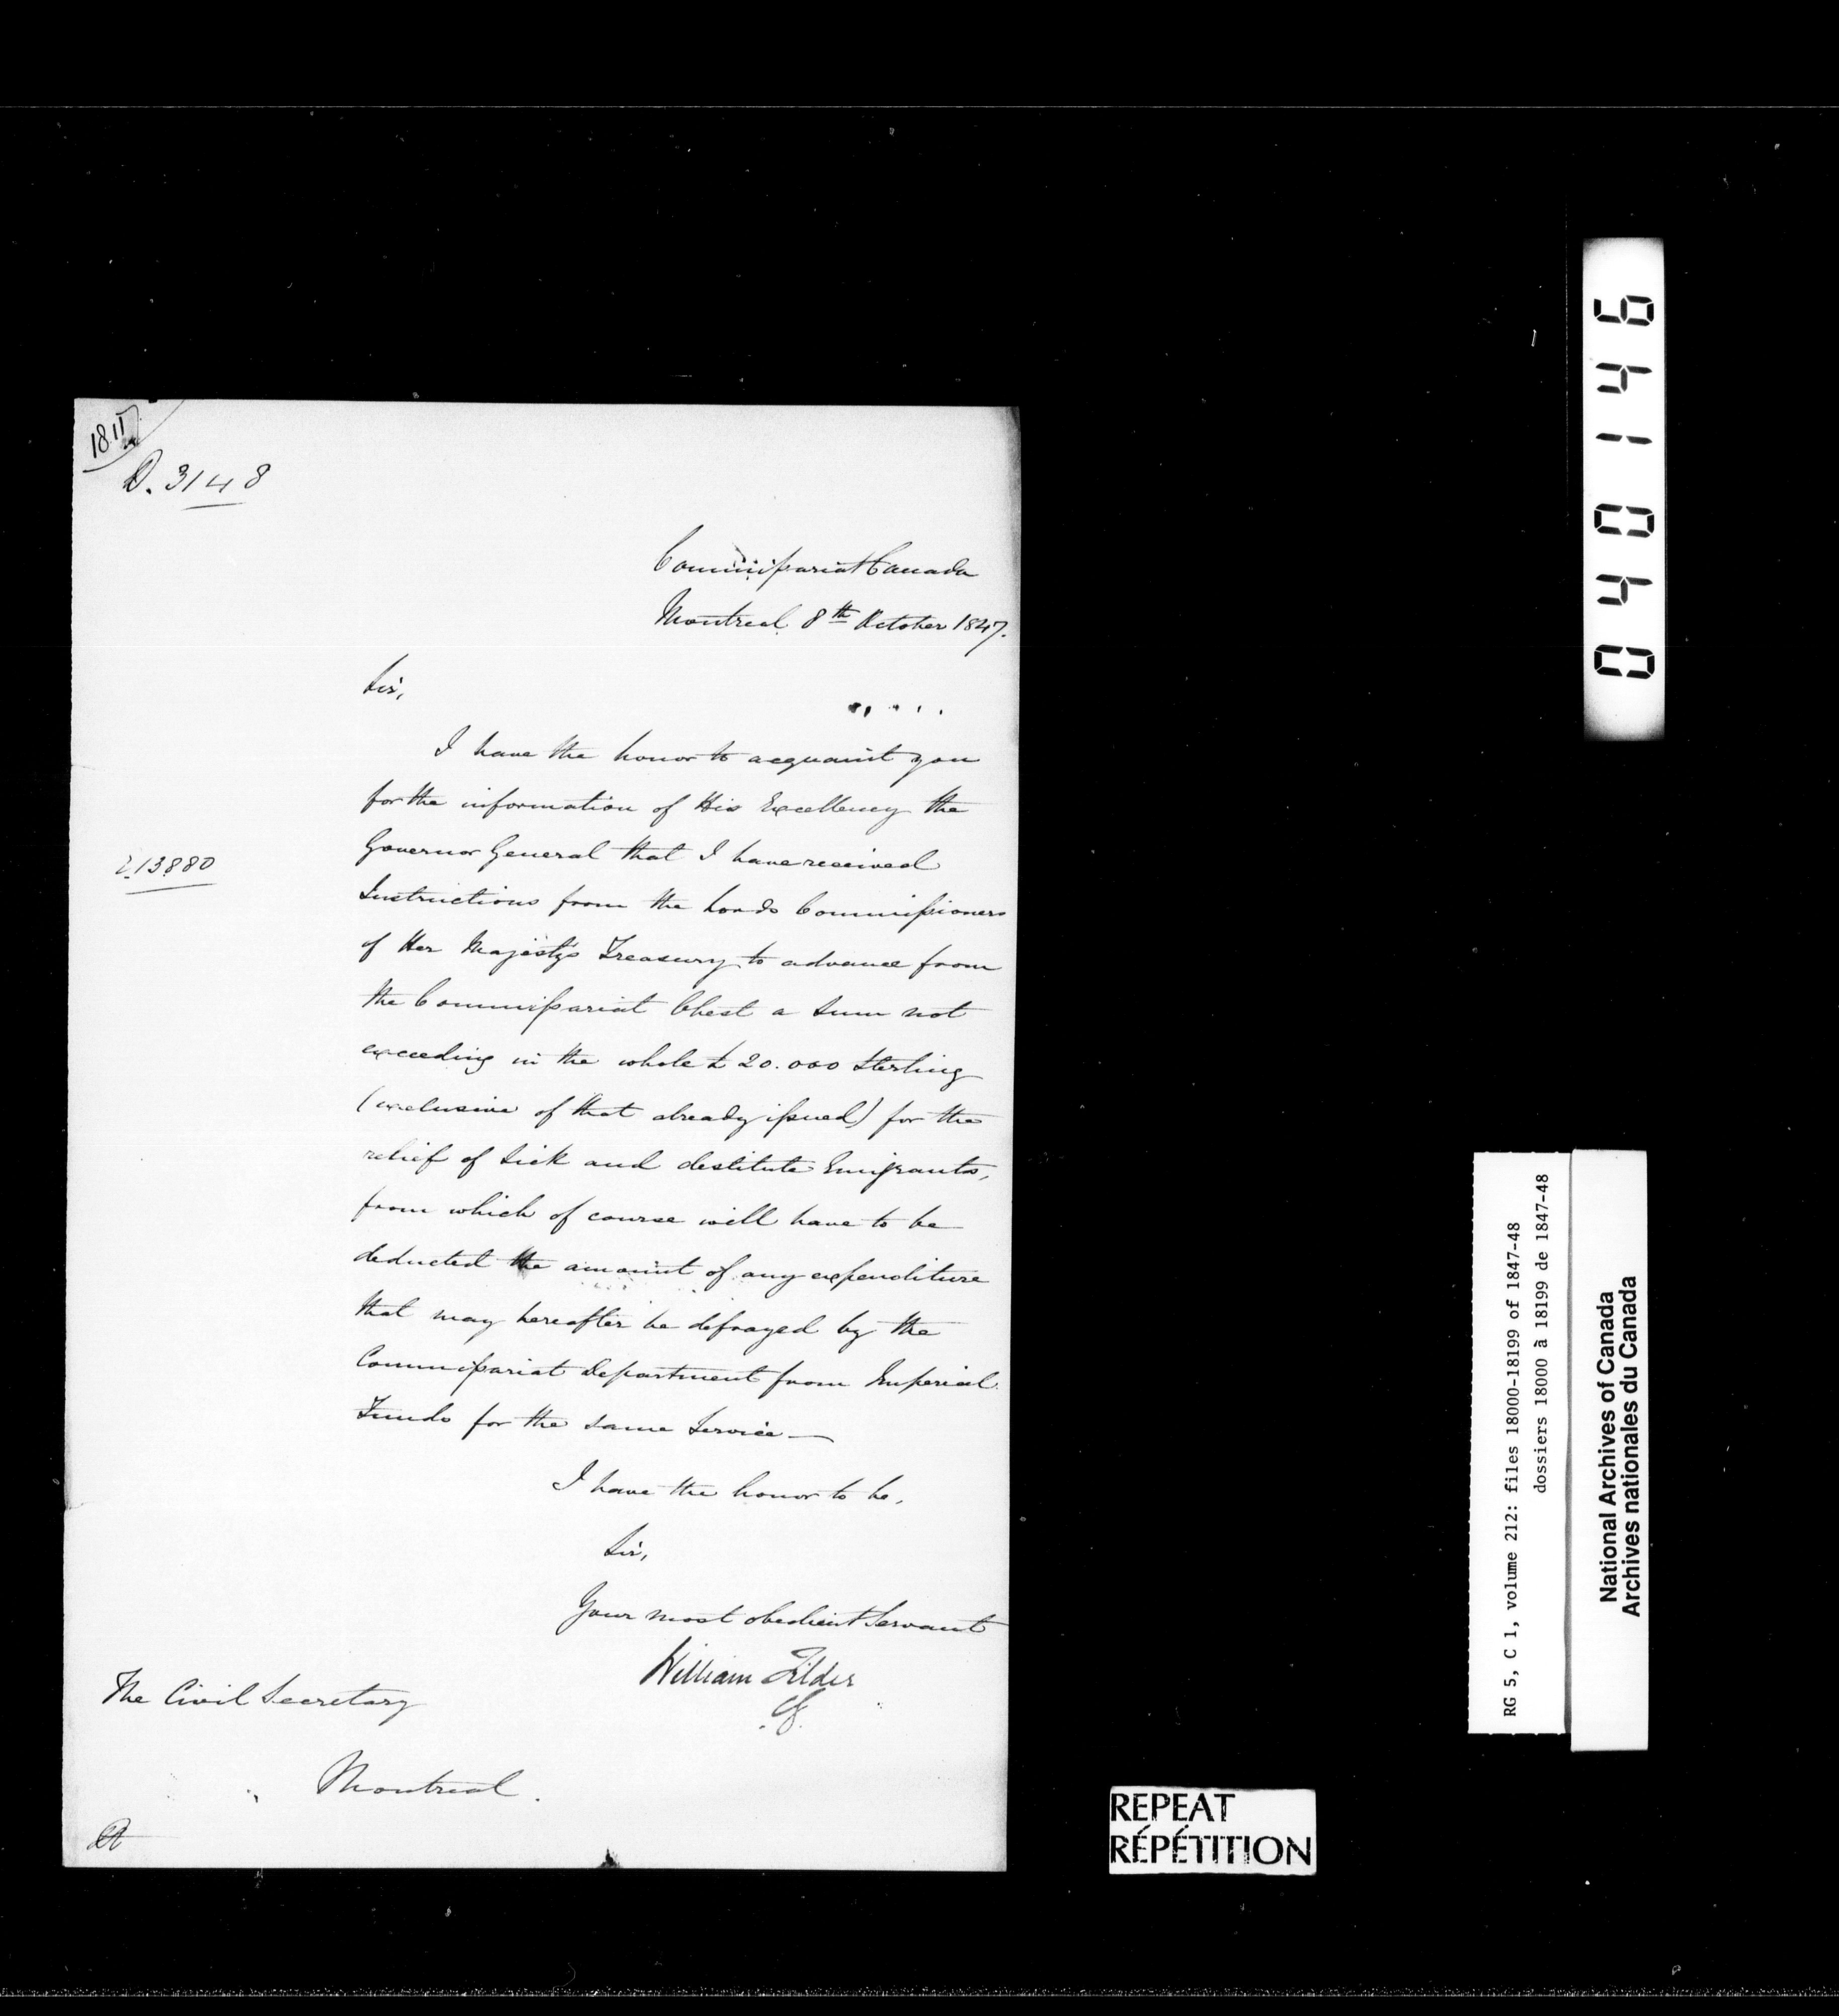 D. 3148
Commissariat Canada
Montreal 8th October 1847.
Sir,
I have the honor to acquaint you
for the information of His Excellency the
Governor General that I have received
13880
Instructions from the Lords Commissioners
of Her Majesty's Treasury to advance from
the Commissariat Chest a Sum not
exceeding in the whole £20.000 Sterling
(exclusive of that already issued) for the
relief of Sick and destitute Emigrants,
from which of course will have to be
deducted the amount of any expenditure
that may hereafter be defrayed by the
Commissariat Department from Imperial
Funds for the same Service—
I have the honor to be,
Sir,
Your most obedient Servant
William Filder
CG.
The Civil Secretary
Montreal.
040146
RG 5, C 1, volume 212: files 18000-18199 of 1847-48
dossiers 18000 à 18199 de 1847-48
National Archives of Canada
Archives nationales du Canada
REPEAT
RÉPÉTITION